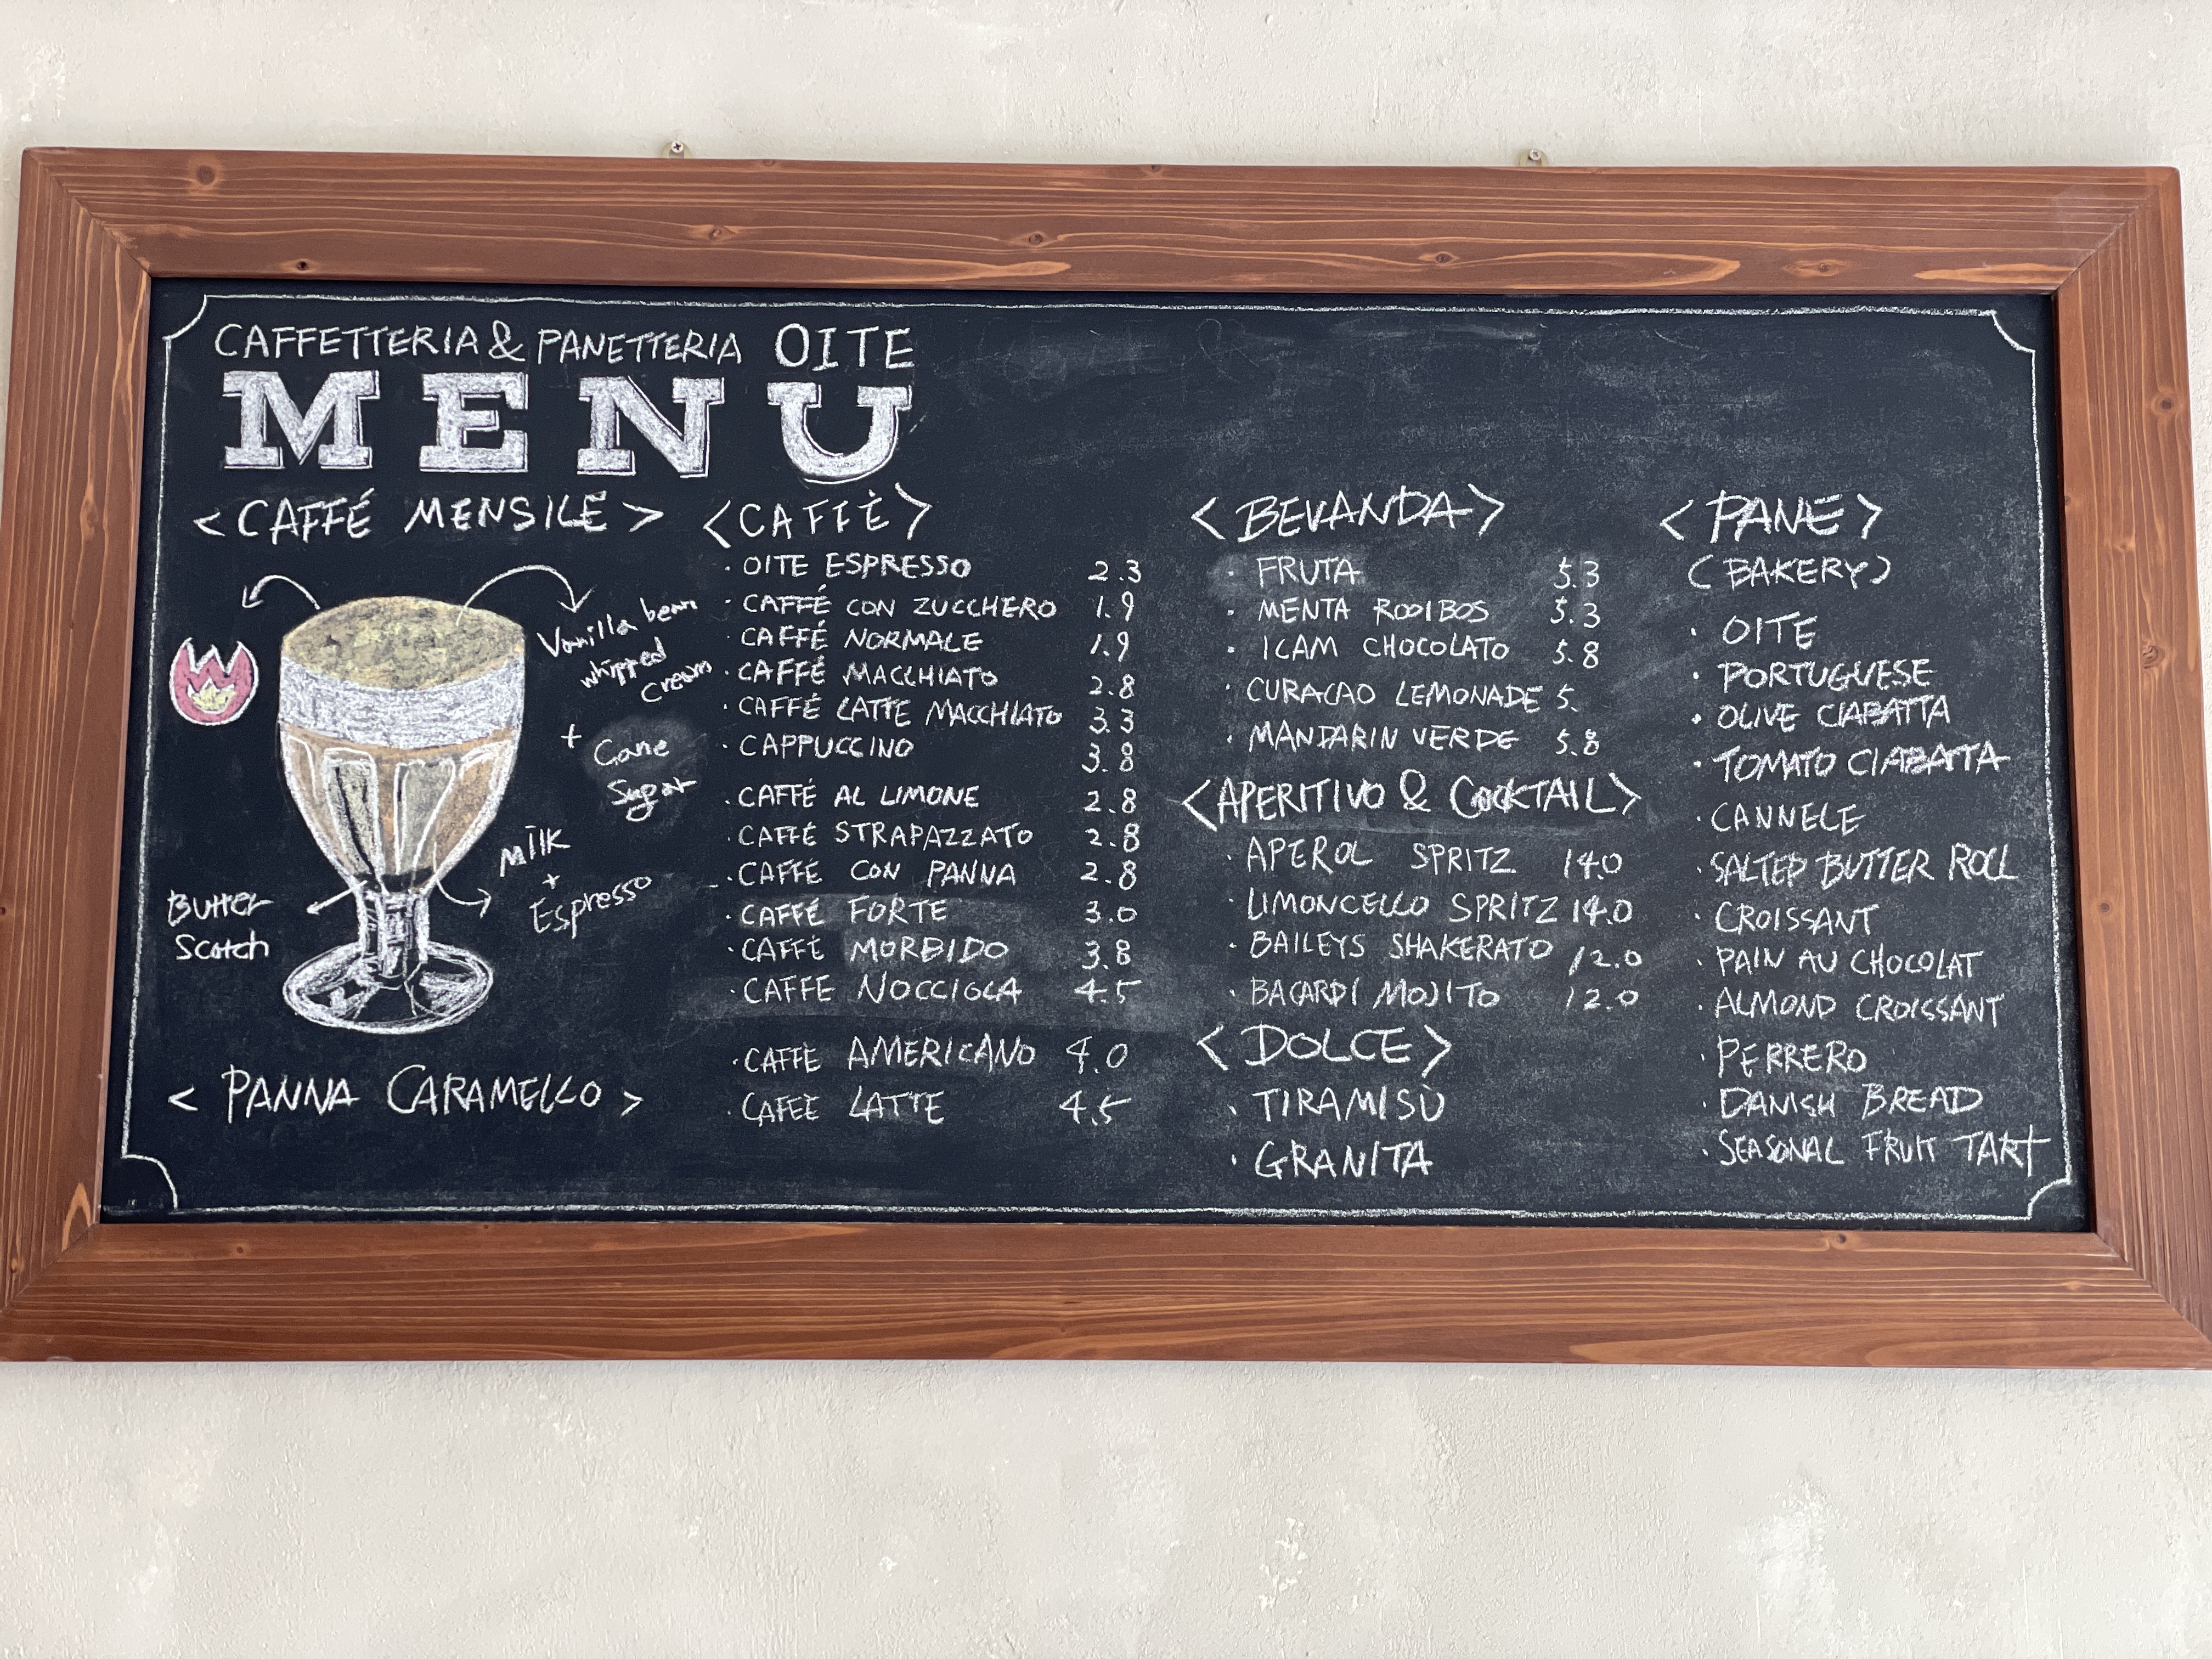 CAFFETTERIA & PANETTERIA OITE
MENU
<CAFFÉ MENSILE>
Vanilla bean
whipped
cream
+ Cane
Sugar
Milk
+
Espresso
Butter
Scotch
< PANNA CARAMELLO >
<CAFFÈ>
· OITE ESPRESSO 2.3
· CAFFÉ CON ZUCCHERO 1.9
· CAFFÉ NORMALE 1.9
· CAFFÉ MACCHIATO 2.8
· CAFFÉ LATTE MACCHIATO 3.3
· CAPPUCCINO 3.8
· CAFFÉ AL LIMONE 2.8
· CAFFÉ STRAPAZZATO 2.8
· CAFFÉ CON PANNA 2.8
· CAFFÉ FORTE 3.0
· CAFFÉ MORBIDO 3.8
· CAFFE NOCCIOLA 4.5
· CAFFÈ AMERICANO 4.0
· CAFFÈ LATTE 4.5
<BEVANDA>
· FRUTA 5.3
· MENTA ROOIBOS 5.3
· ICAM CHOCOLATO 5.8
· CURACAO LEMONADE 5.
· MANDARIN VERDE 5.8
<APERITIVO & COCKTAIL>
· APEROL SPRITZ 14.0
· LIMONCELLO SPRITZ 14.0
· BAILEYS SHAKERATO 12.0
· BACARDI MOJITO 12.0
<DOLCE>
· TIRAMISÙ
· GRANITA
<PANE>
(BAKERY)
· OITE
· PORTUGUESE
· OLIVE CIABATTA
· TOMATO CIABATTA
· CANNELE
· SALTED BUTTER ROLL
· CROISSANT
· PAIN AU CHOCOLAT
· ALMOND CROISSANT
· PERRERO
· DANISH BREAD
· SEASONAL FRUIT TART